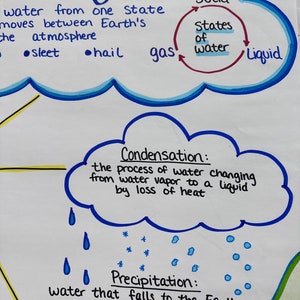 Solid
water from one state
moves between Earth's
the atmosphere
•sleet •hail
States
of
water
gas
Liquid
Condensation:
the process of water changing
from water vapor to a liquid
by loss of heat
Precipitation:
water that falls to the